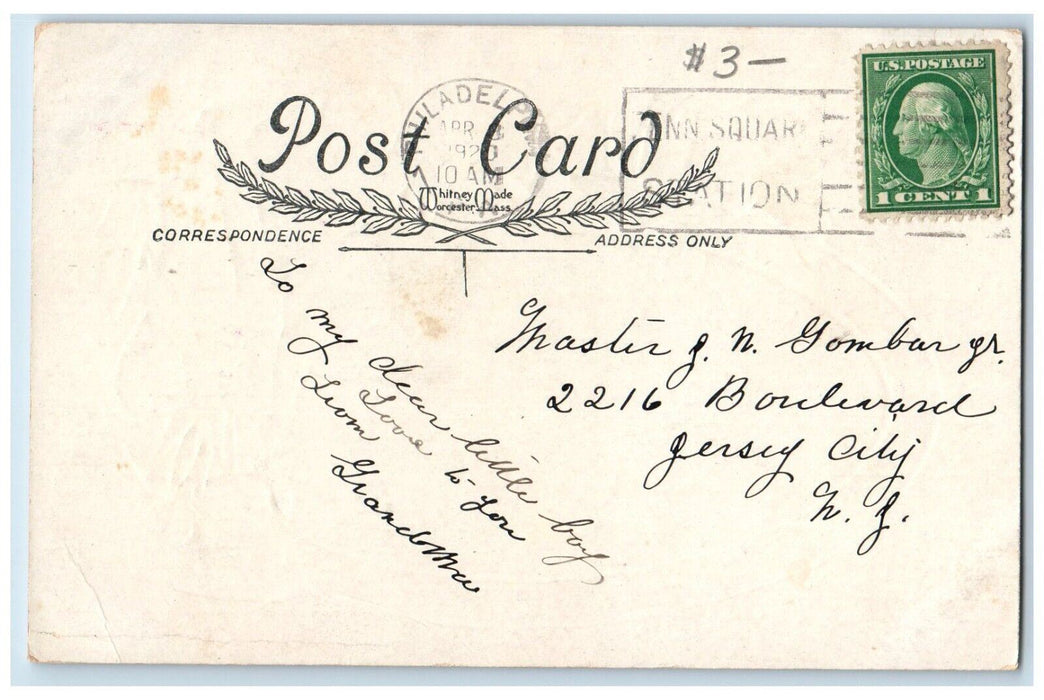 #3—
U.S.POSTAGE
1 CENT 1
PHILADELPHIA
APR 3
192
10 AM
NN SQUAR
STATION
Post Card
Whitney Made
Worcester, Mass.
CORRESPONDENCE
ADDRESS ONLY
To my dear little boy
Love to you
From
Master J. N. Gombar Jr.
2216 Boulevard
Jersey City
N. J.